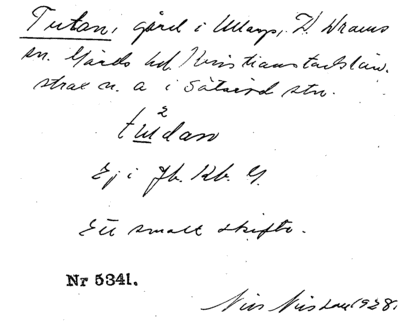 Tutan, gård i Ullarp, Ö. Vrams
sn. Gärds hd. Kristianstads län.
strax n. a i Sätaröd stn.
2
tudan
Ej i Jb. Kb. G.
Ett smalt skifte.
Nr 5341.
Nils Nilsson 1928.